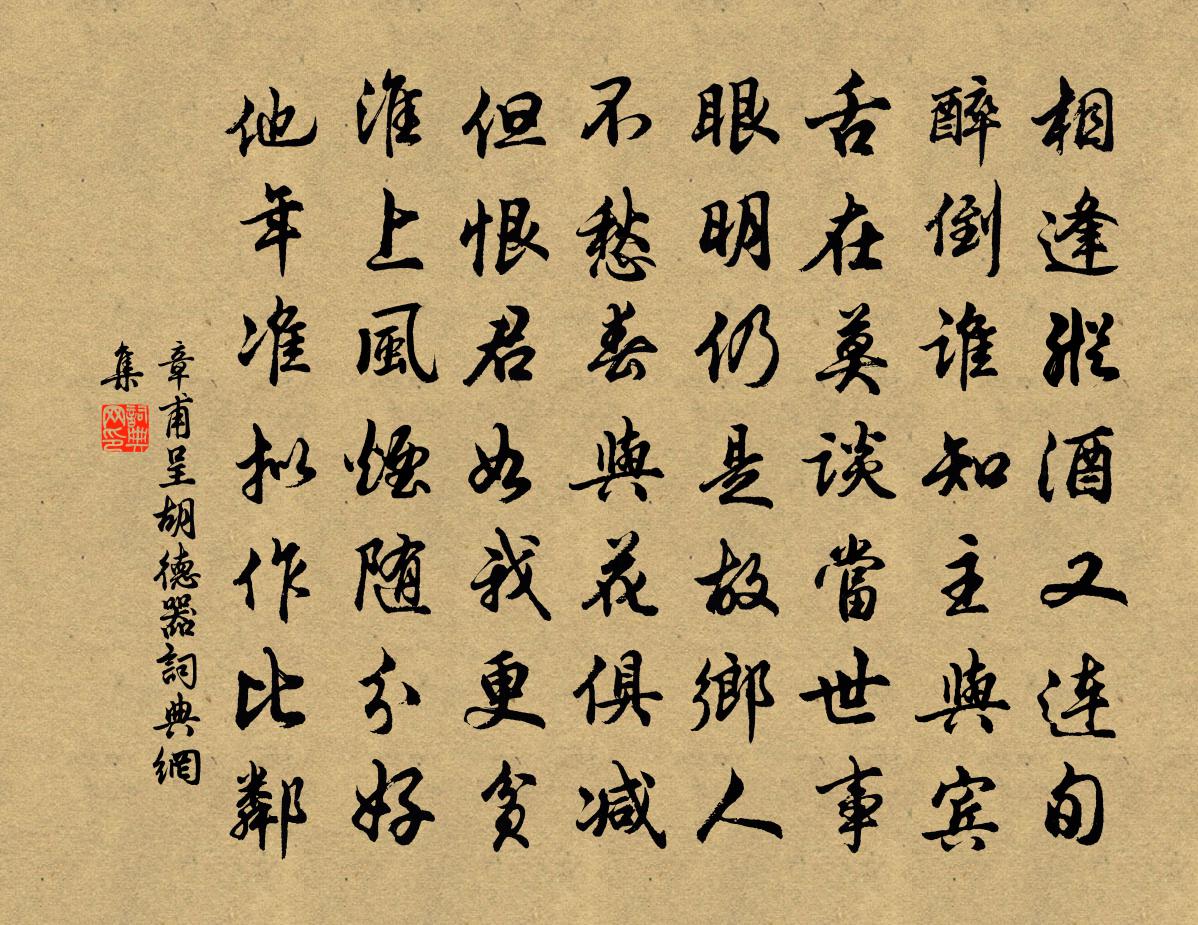 相逢縱酒又連旬
醉倒誰知主與賓
舌在莫談當世事
眼明仍是故鄉人
不愁春與花俱減
但恨君如我更貧
淮上風煙隨分好
他年准擬作比鄰
章甫呈胡德器詞典網
集
詞典網印